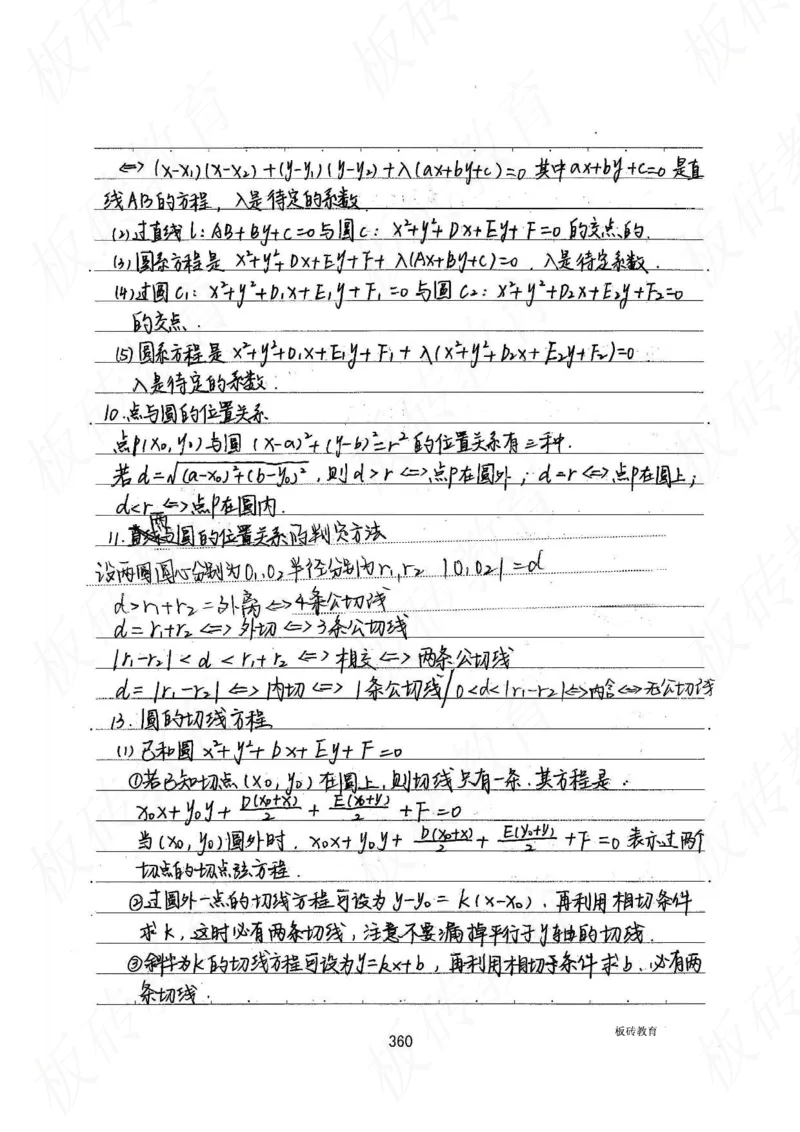 ⇔ (x-x₁)(x-x₂)+(y-y₁)(y-y₂)+λ(ax+by+c)=0 其中ax+by+c=0 是直
线AB的方程，λ是待定的系数
(2)过直线l: AB+By+c=0与圆c: x²+y²+Dx+Ey+F=0 的交点的.
(3)圆系方程是 x²+y²+Dx+Ey+F+λ(Ax+By+c)=0 . λ是待定系数 .
(4)过圆C₁: x²+y²+D₁x+E₁y+F₁=0与圆C₂: x²+y²+D₂x+E₂y+F₂=0
的交点 .
(5)圆系方程是 x²+y²+D₁x+E₁y+F₁+λ(x²+y²+D₂x+E₂y+F₂)=0
λ是待定的系数 .
10.点与圆的位置关系
点P(x₀,y₀)与圆 (x-a)²+(y-b)²=r²的位置关系有三种.
若d=√(a-x₀)²+(b-y₀)² , 则d>r⇔点P在圆外；d=r⇔点P在圆上；
d<r⇔点P在圆内.
11.两圆的位置关系的判定方法
设两圆圆心分别为O₁,O₂半径分别为r₁,r₂ |O₁O₂|=d
d>r₁+r₂=外离⇔4条公切线
d=r₁+r₂⇔外切⇔3条公切线
|r₁-r₂|<d<r₁+r₂⇔相交⇔两条公切线
d=|r₁-r₂|⇔内切⇔1条公切线/0<d<|r₁-r₂|⇔内含⇔无公切线
13.圆的切线方程
(1)已和圆x²+y²+Dx+Ey+F=0
①若已知切点(x₀,y₀)在圆上,则切线只有一条.其方程是.
x₀x+y₀y+D(x₀+x)/2+E(y₀+y)/2+F=0
当(x₀,y₀)圆外时. x₀x+y₀y+D(x₀+x)/2+E(y₀+y)/2+F=0表示过两个
切点的切点弦方程.
②过圆外一点的切线方程可设为y-y₀=k(x-x₀). 再利用相切条件
求k,这时必有两条切线,注意不要漏掉平行于y轴的切线.
③斜率为k的切线方程可设为y=kx+b,再利用相切条件求b.必有两
条切线.
板砖教育
360